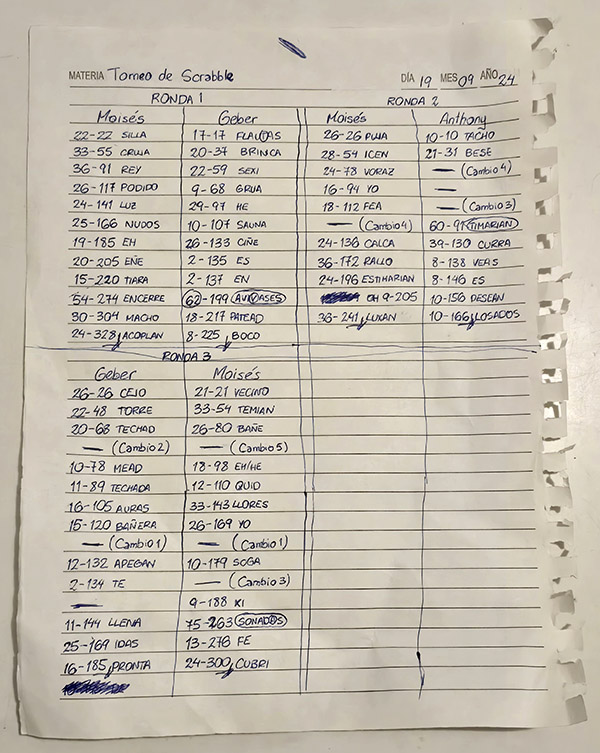 MATERIA Torneo de Scrabble DÍA 19 MES 09 AÑO 24
RONDA 1 RONDA 2
Moisés Geber Moisés Anthony
22-22 SILLA 17-17 FLAUTAS 26-26 PUJA 10-10 TACHO
33-55 CRUJA 20-37 BRINCA 28-54 ICEN 21-31 BESE
36-91 REY 22-59 SEXI 24-78 VORAZ — (Cambio 4)
26-117 PODIDO 9-68 GRUA 16-94 YO —
24-141 LUZ 29-97 HE 18-112 FEA — (Cambio 3)
25-166 NUDOS 10-107 SAUNA — (Cambio 4) 60-91 TIMARIAN
19-185 EH 26-133 CIÑE 24-136 CALCA 39-130 CURRA
20-205 EÑE 2-135 ES 36-172 RALLO 8-138 VEAS
15-220 TIARA 2-137 EN 24-196 ESTIMARIAN 8-146 ES
54-274 ENCERRE 62-199 OH 9-205 10-156 DESEAN
30-304 MACHO 18-217 PATEAD 36-241 LUXAN 10-166 LOSADOS
24-328 ACOPLAN 8-225 BOCO
RONDA 3
Geber Moisés
26-26 CEJO 21-21 VECINO
22-48 TORRE 33-54 TEMIAN
20-68 TECHAD 26-80 BAÑE
— (Cambio 2) — (Cambio 5)
10-78 MEAD 18-98 EH/HE
11-89 TECHADA 12-110 QUID
16-105 AURAS 33-143 LLORES
15-120 BAÑERA 26-169 YO
— (Cambio 1) — (Cambio 1)
12-132 APEGAN 10-179 SOGA
2-134 TE — (Cambio 3)
— 9-188 XI
11-144 LLENA 75-263 SONADOS
25-169 IDAS 13-276 FE
16-185 PRONTA 24-300 CUBRI